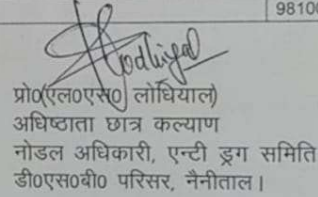 9810
Lodhiyal
प्रो0(एल0एस0 लोधियाल)
अधिष्ठाता छात्र कल्याण
नोडल अधिकारी, एन्टी ड्रग समिति
डी0एस0बी0 परिसर, नैनीताल।